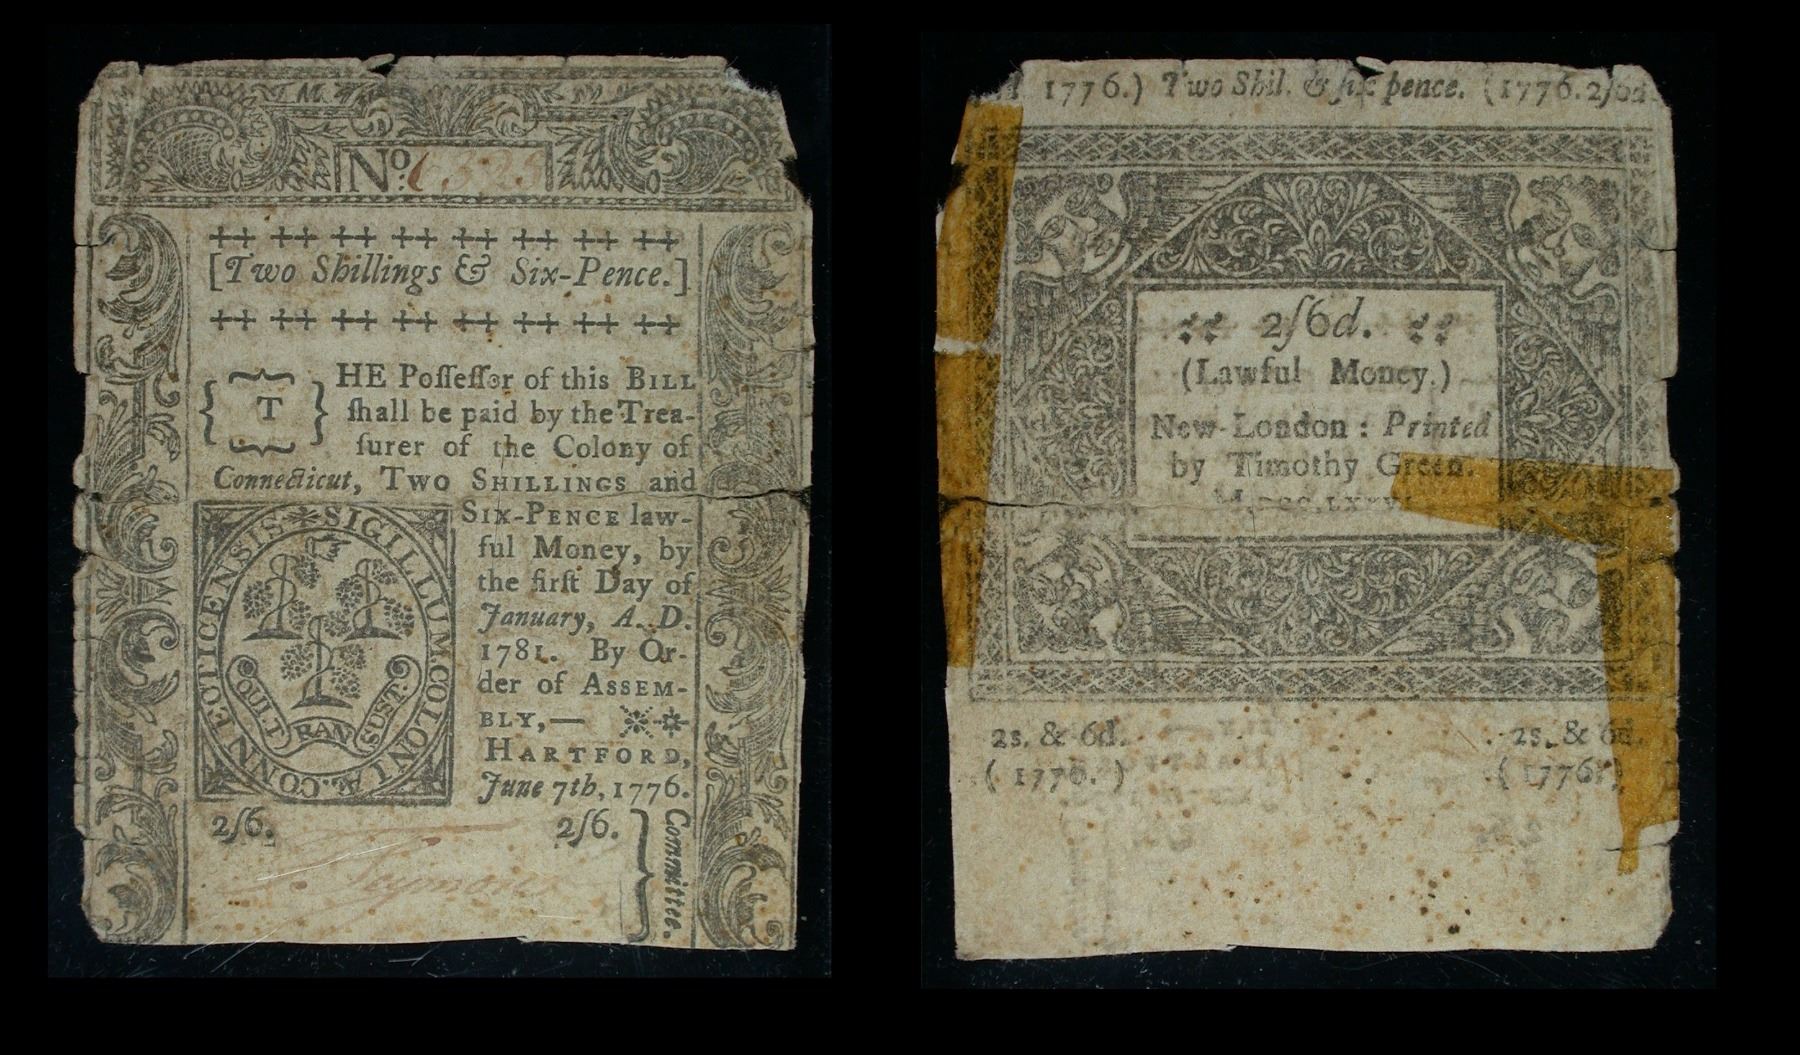 No:
[Two Shillings & Six-Pence.]
THE Poſſeſſor of this BILL
ſhall be paid by the Trea-
ſurer of the Colony of
Connecticut, TWO SHILLINGS and
SIX-PENCE law-
ful Money, by
the firſt Day of
January, A. D.
1781. By Or-
der of ASSEM-
BLY,—
HARTFORD,
June 7th, 1776.
SIGILLUM. COLONIÆ. CONNECTICENSIS
QUI TRAN SUST.
2ſ6. 2ſ6.
Seymour
Committee.
1776.) Two Shil. & ſix pence. (1776. 2ſ6d.
2ſ6d.
(Lawful Money.)
New-London: Printed
by Timothy Green.
2s. & 6d. 2s. & 6d.
(1776.) (1776.)